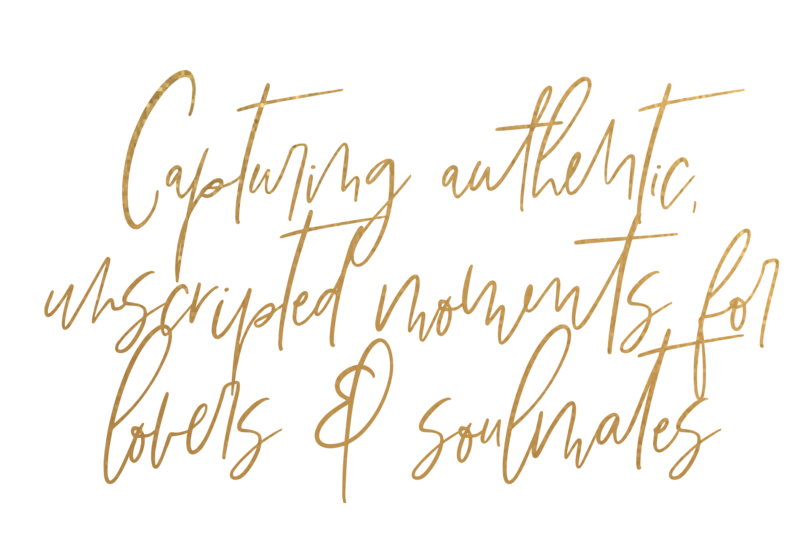 Capturing authentic,
unscripted moments for
lovers & soulmates